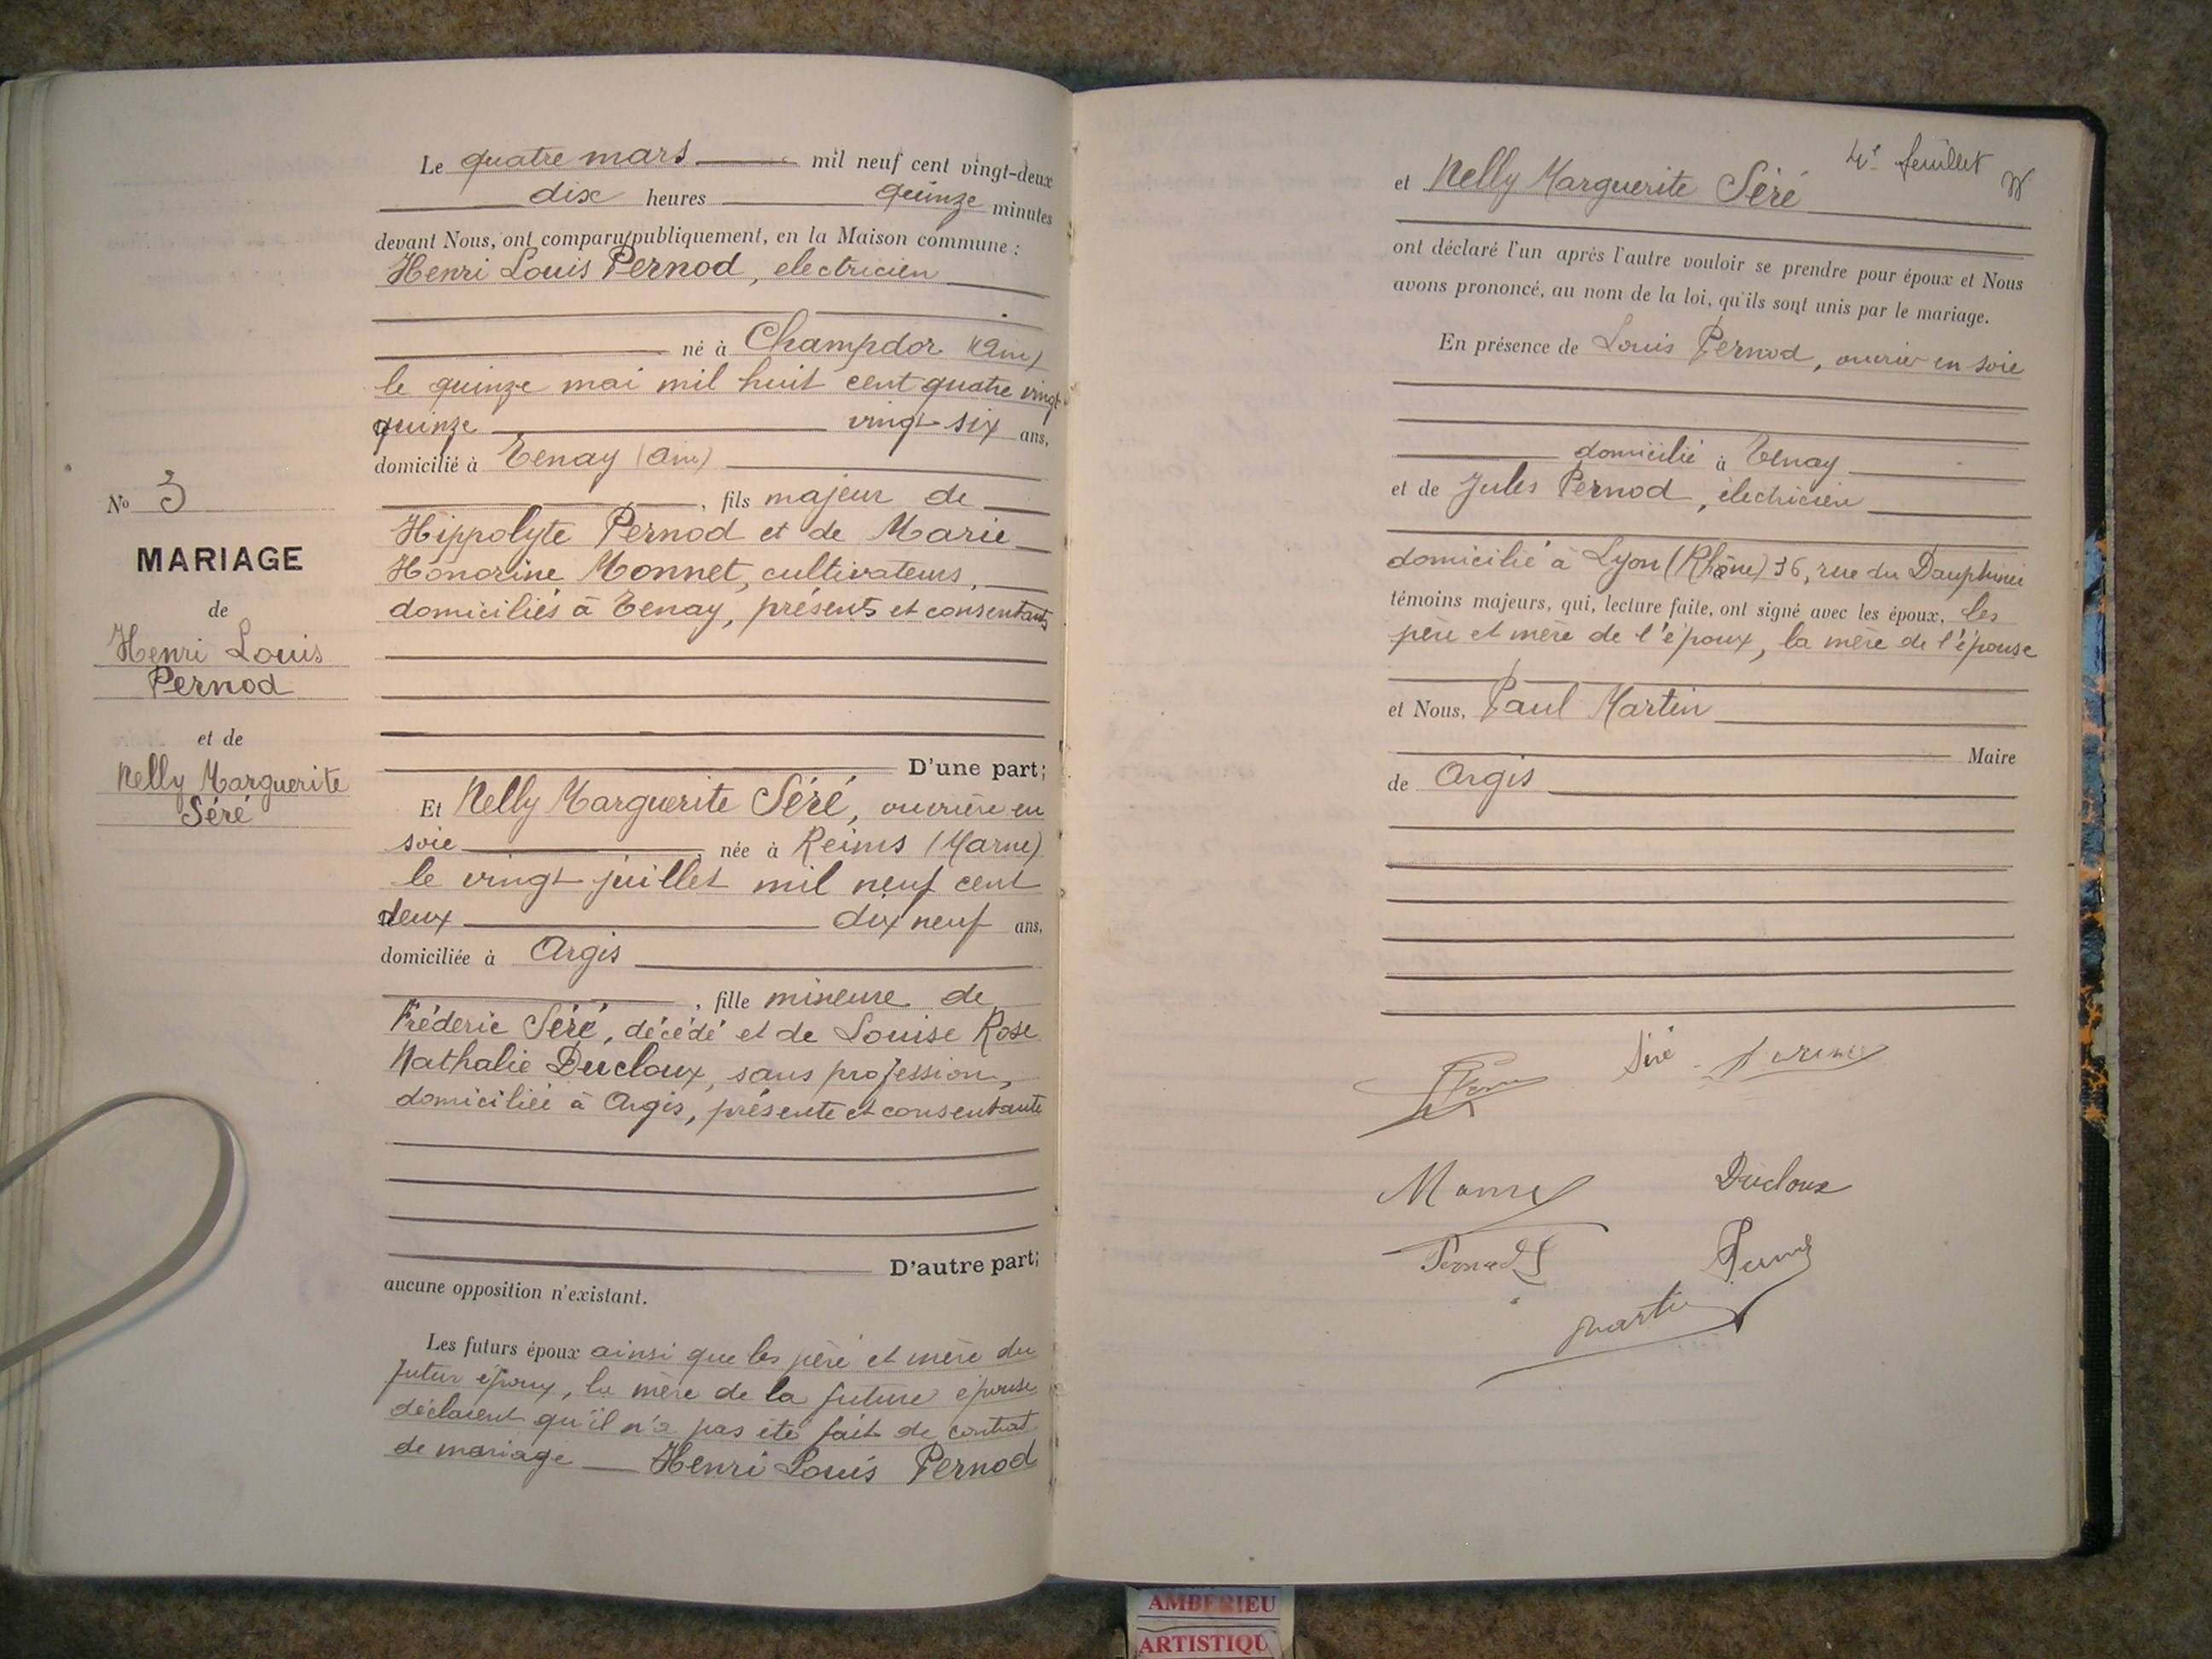 Le quatre mars mil neuf cent vingt-deux
dix heures quinze minutes
devant Nous, ont comparu publiquement, en la Maison commune :
Henri Louis Pernod, electricien
né à Champdor (Ain)
le quinze mai mil huit cent quatre vingt
quinze vingt six ans,
domicilié à Tenay (Ain)
, fils majeur de
Hippolyte Pernod et de Marie
Honorine Monnet, cultivateurs,
domiciliés à Tenay, présents et consentants
D'une part;
Et Nelly Marguerite Séré, ouvrière en
soie née à Reims (Marne)
le vingt juillet mil neuf cent
deux dix neuf ans,
domiciliée à Argis
, fille mineure de
Fréderic Séré, décédé et de Louise Rose
Nathalie Ducloux, sans profession,
domiciliée à Argis, présente et consentante
D'autre part;
aucune opposition n'existant.
Les futurs époux ainsi que les père et mère du
futur époux, la mère de la future épouse
déclarent qu'il n'a pas été fait de contrat
de mariage Henri Louis Pernod
No 3
MARIAGE
de
Henri Louis
Pernod
et de
Nelly Marguerite
Séré
4e feuillet
et Nelly Marguerite Séré
ont déclaré l'un après l'autre vouloir se prendre pour époux et Nous
avons prononcé, au nom de la loi, qu'ils sont unis par le mariage.
En présence de Louis Pernod, ouvrier en soie
domicilié à Tenay
et de Jules Pernod, électricien
domicilié à Lyon (Rhône) 36, rue du Dauphiné
témoins majeurs, qui, lecture faite, ont signé avec les époux, les
père et mère de l'époux, la mère de l'épouse
et Nous, Paul Martin
Maire
de Argis
Séré
Ducloux
Pernod
Martin
AMBERIEU
ARTISTIQU